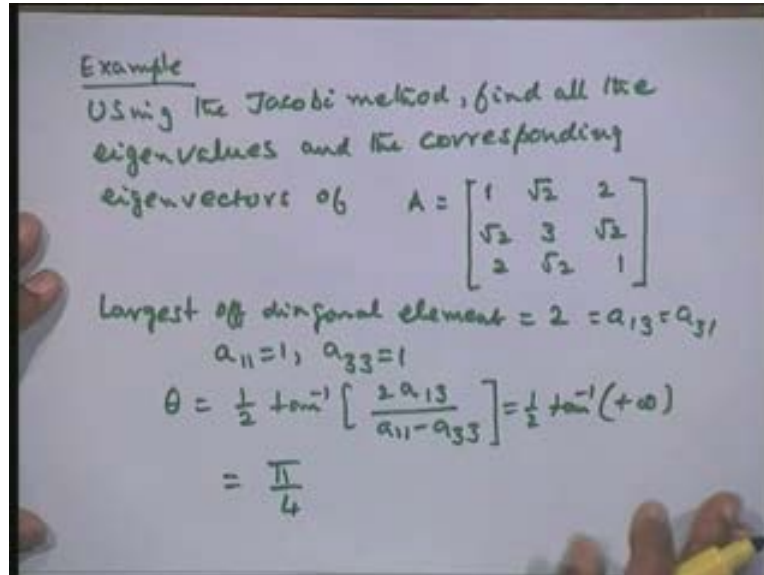 Example
Using the Jacobi method, find all the
eigenvalues and the corresponding
eigenvectors of A = [1 √2 2
√2 3 √2
2 √2 1]
Largest off diagonal element = 2 = a₁₃ = a₃₁
a₁₁ = 1, a₃₃ = 1
θ = 1/2 tan⁻¹ [2a₁₃ / a₁₁ - a₃₃] = 1/2 tan⁻¹ (+∞)
= π/4